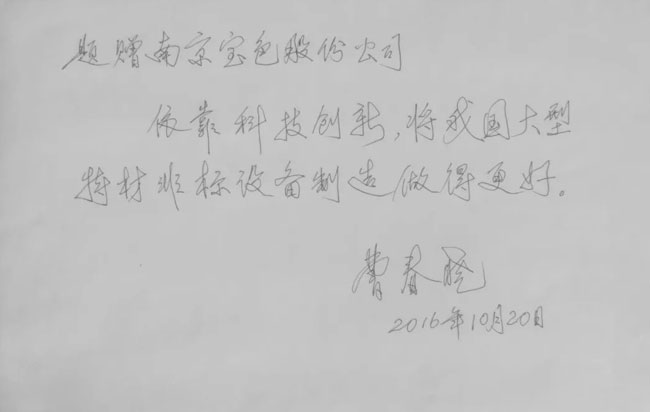 题赠南京宝色股份公司
依靠科技创新,将我国大型
特材非标设备制造做得更好。
曹春晓
2016年10月20日